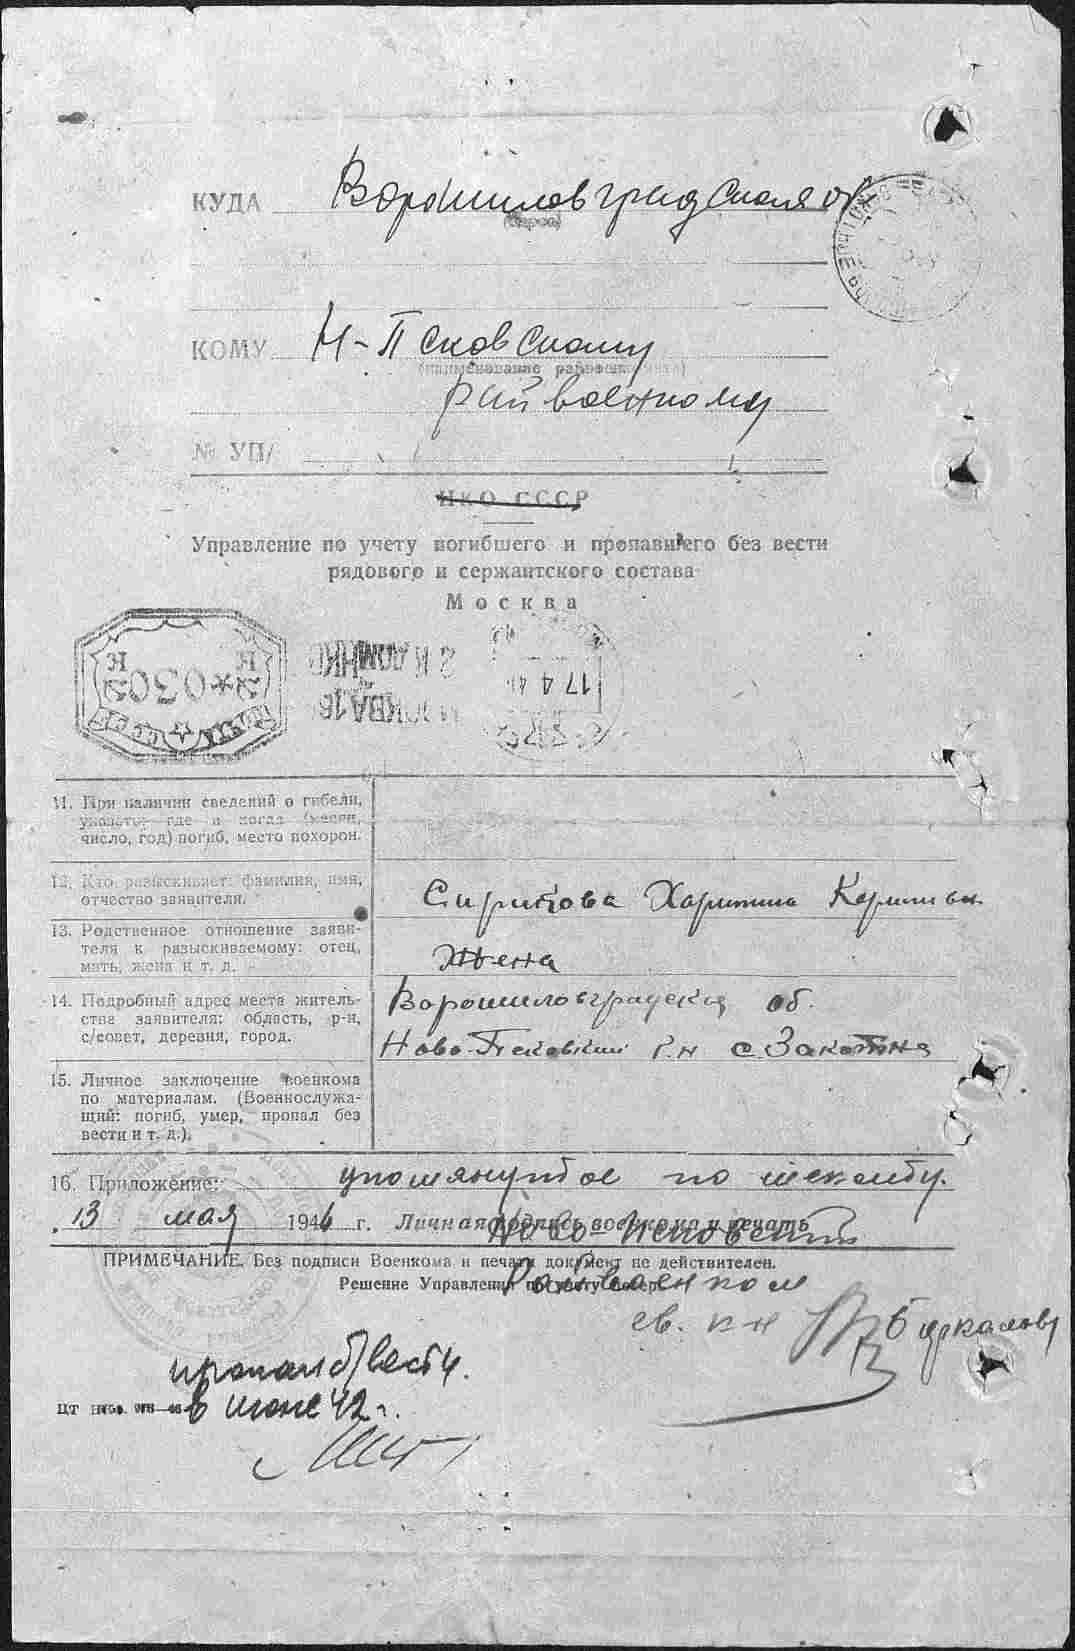 КУДА Ворошиловградская об
(адрес)
КОМУ Н-Псковскому
(наименование райвоенкомата)
райвоенкому
№ УП/
НКО СССР
Управление по учету погибшего и пропавшего без вести
рядового и сержантского состава
Москва
К К
*030
ПОЧТА СССР
МОСКВА 19
17 4 4
11. При наличии сведений о гибели,
указать: где и когда (месяц,
число, год) погиб, место похорон.
12. Кто разыскивает: фамилия, имя,
отчество заявителя.
Харитина
13. Родственное отношение заяви-
теля к разыскиваемому: отец,
мать, жена и т. д.
Жена
14. Подробный адрес места житель-
ства заявителя: область, р-н,
с/совет, деревня, город.
Ворошиловградская об.
Ново-Псковский р-н с.
15. Личное заключение военкома
по материалам. (Военнослужа-
щий: погиб, умер, пропал без
вести и т. д.).
16. Приложение: упомянутое по тексту.
13 мая 1946 г. Личная подпись военкома и печать
Ново-Псковский
ПРИМЕЧАНИЕ. Без подписи Военкома и печати документ не действителен.
Решение Управления по учету потерь
Райвоенком
пропал б/вести
в июне 42 г.